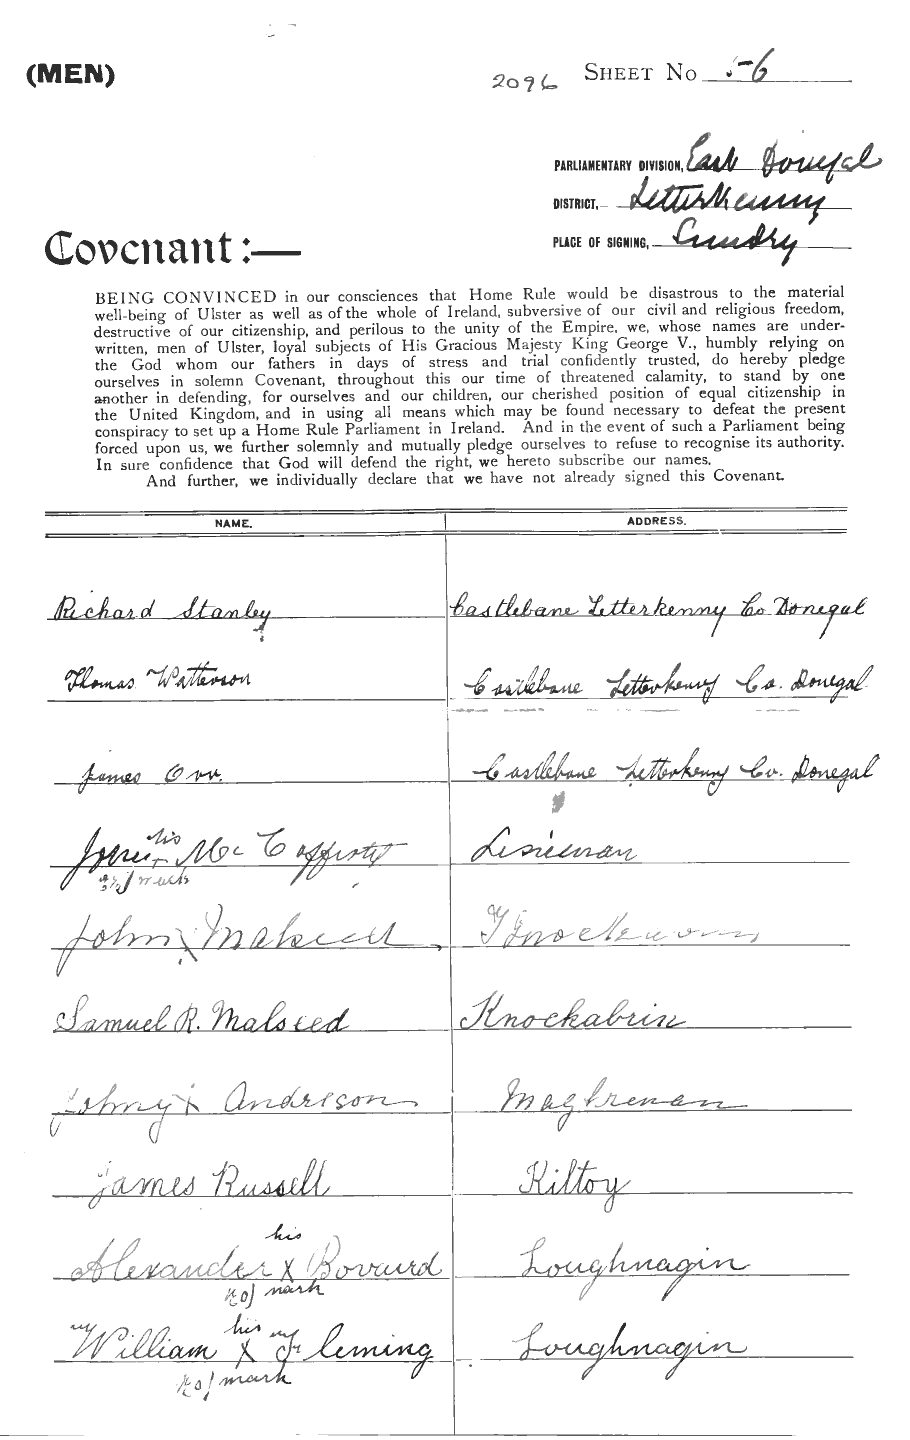 (MEN)
2096 SHEET No 56
PARLIAMENTARY DIVISION, East Donegal
DISTRICT, Letterkenny
PLACE OF SIGNING, Sundry
Covenant :—
BEING CONVINCED in our consciences that Home Rule would be disastrous to the material
well-being of Ulster as well as of the whole of Ireland, subversive of our civil and religious freedom,
destructive of our citizenship, and perilous to the unity of the Empire, we, whose names are under-
written, men of Ulster, loyal subjects of His Gracious Majesty King George V., humbly relying on
the God whom our fathers in days of stress and trial confidently trusted, do hereby pledge
ourselves in solemn Covenant, throughout this our time of threatened calamity, to stand by one
another in defending, for ourselves and our children, our cherished position of equal citizenship in
the United Kingdom, and in using all means which may be found necessary to defeat the present
conspiracy to set up a Home Rule Parliament in Ireland. And in the event of such a Parliament being
forced upon us, we further solemnly and mutually pledge ourselves to refuse to recognise its authority.
In sure confidence that God will defend the right, we hereto subscribe our names.
And further, we individually declare that we have not already signed this Covenant.
NAME. ADDRESS.
Richard Stanley Castlebane Letterkenny Co. Donegal
Thomas Watterson Castlebane Letterkenny Co. Donegal
James Orr. Castlebane Letterkenny Co. Donegal
his
Mc Cafferty
mark
John Malseed
Samuel R. Malseed Knockabrin
Johny x Andreson
James Russell Kiltoy
his
Alexander X Bovaird Loughnagin
mark
his
William X Fleming Loughnagin
mark